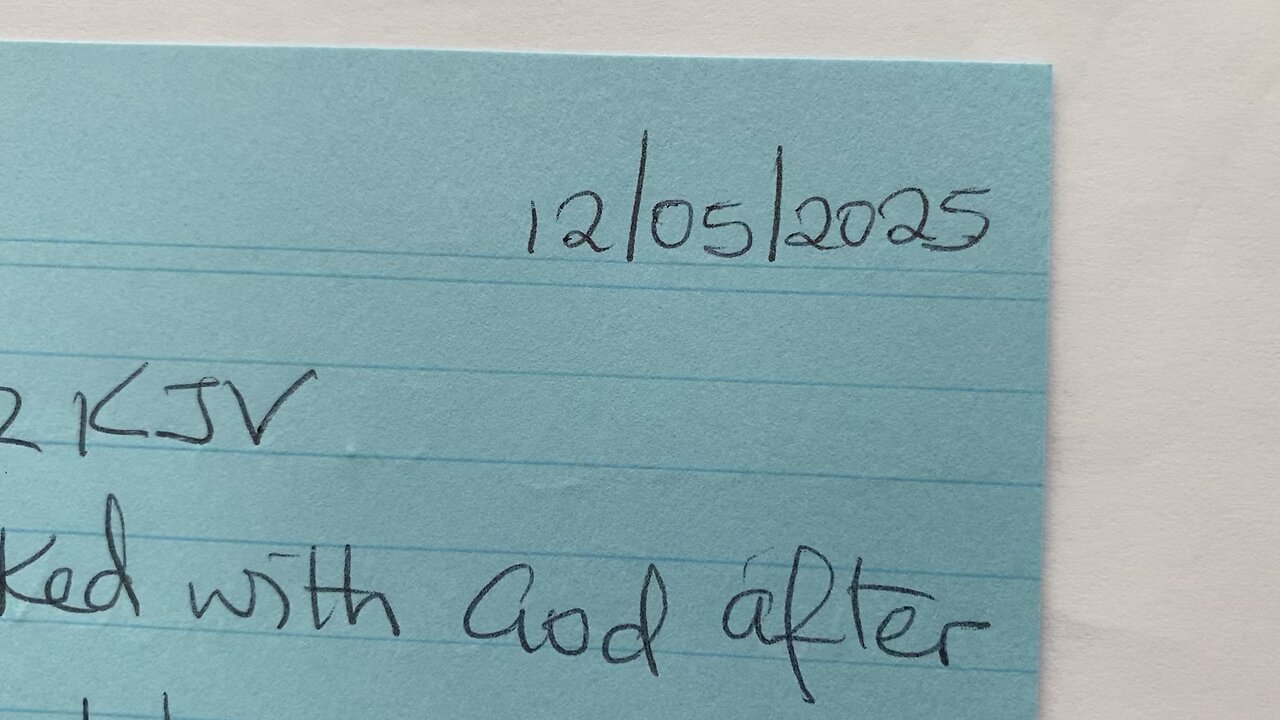 12/05/2025
2 KJV
ked with God after